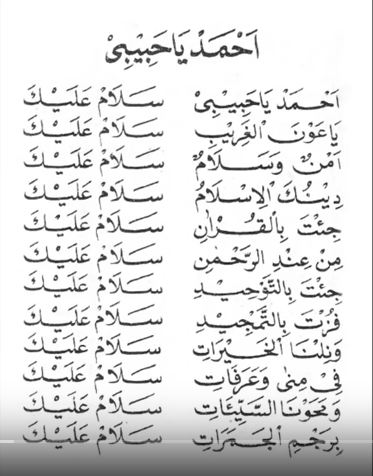 اَحْمَدْ يَاحَبِيْبِىْ
اَحْمَدْ يَاحَبِيْبِىْ سَلَامْ عَلَيْكَ
يَاعَوْنَ الْغَرِيْبِ سَلَامْ عَلَيْكَ
اَمْنٌ وَسَلَامٌ سَلَامْ عَلَيْكَ
دِيْنُكَ الْاِسْلَامُ سَلَامْ عَلَيْكَ
جِئْتَ بِالْقُرْاٰنِ سَلَامْ عَلَيْكَ
مِنْ عِنْدِ الرَّحْمٰنِ سَلَامْ عَلَيْكَ
جِئْتَ بِالتَّوْحِيْدِ سَلَامْ عَلَيْكَ
فُزْتَ بِالتَّمْجِيْدِ سَلَامْ عَلَيْكَ
وَنِلْنَا الْخَيْرَاتِ سَلَامْ عَلَيْكَ
فِيْ مِنٰى وَعَرَفَاتِ سَلَامْ عَلَيْكَ
وَمَحَوْنَا السَّيِّئَاتِ سَلَامْ عَلَيْكَ
بِرَجْمِ الْجَمَرَاتِ سَلَامْ عَلَيْكَ